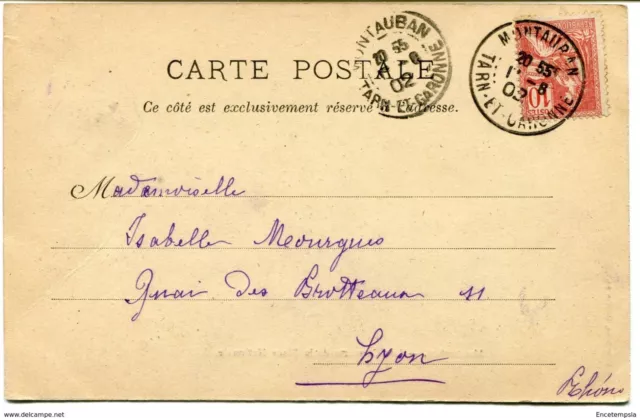 MONTAUBAN
20 55
02
TARN-ET-GARONNE
MONTAUBAN
20 55
8
02
TARN-ET-GARONNE
10
CARTE POSTALE
Ce côté est exclusivement réservé à l'adresse.
Mademoiselle
Isabelle Meourgues
Quai des Brotteaux 11
Lyon
Rhône
www.delcampe.net
Encetempsia